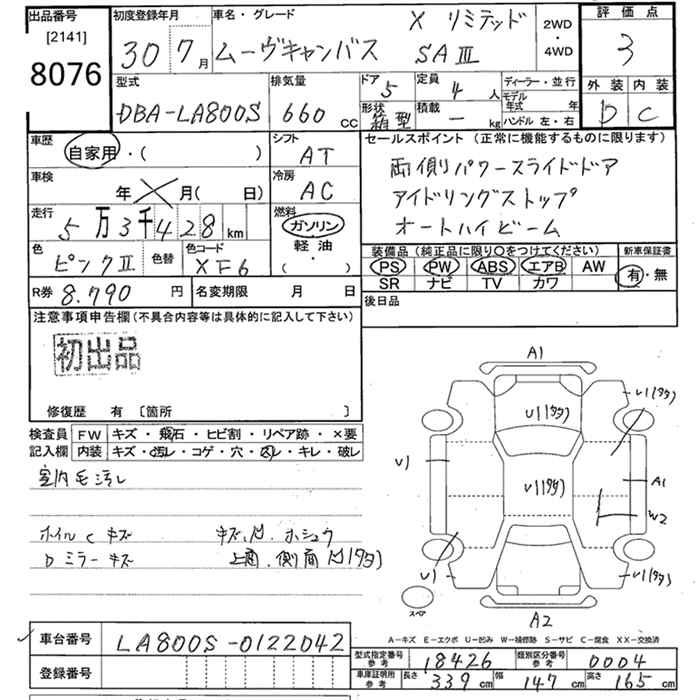 出品番号
[2141]
8076
初度登録年月
30 7月
車名・グレード
X リミテッド
ムーヴキャンバス SAⅢ
2WD
・
4WD
評価点
3
外装 内装
D C
型式
DBA-LA800S
排気量
660 cc
ドア
5
定員
4 人
ディーラー・並行
モデル年式 年
形状
箱型
積載
— kg
ハンドル 左・右
車歴
自家用・( )
シフト
AT
セールスポイント (正常に機能するものに限ります)
両側パワースライドドア
アイドリングストップ
オートハイビーム
車検
年 月( 日)
冷房
AC
走行
5万3千428km
燃料
ガソリン
軽油
( ・ )
色
ピンクⅡ
色替
色コード
XF6
装備品 (純正品に限り○をつけてください)
PS PW ABS エアB AW
SR ナビ TV カワ
新車保証書
有・無
R券 8.790 円
名変期限 月 日
後日品
注意事項申告欄(不具合内容等は具体的に記入して下さい)
初出品
修復歴 有 [箇所 ]
検査員記入欄
FW キズ・飛石・ヒビ割・リペア跡・×要
内装 キズ・汚レ・コゲ・穴・凹レ・キレ・破レ
室内毛汚レ
ホイルCキズ
キズ.凹.ホシュウ
Dミラーキズ
上面.側面凹(タタ)
A1
U1(タタ)
U1(タタ)
U1(タタ)
U)
A1
W2
U)
U1(タタ)
スペア
A2
A-キズ E-エクボ U-凹み W-補修跡 S-サビ C-腐食 XX-交換済
車台番号
LA800S-0122042
登録番号
型式指定番号 参考
18426
類別区分番号 参考
0004
車庫証明用 参考
長さ 339cm
幅 147cm
高さ 165cm